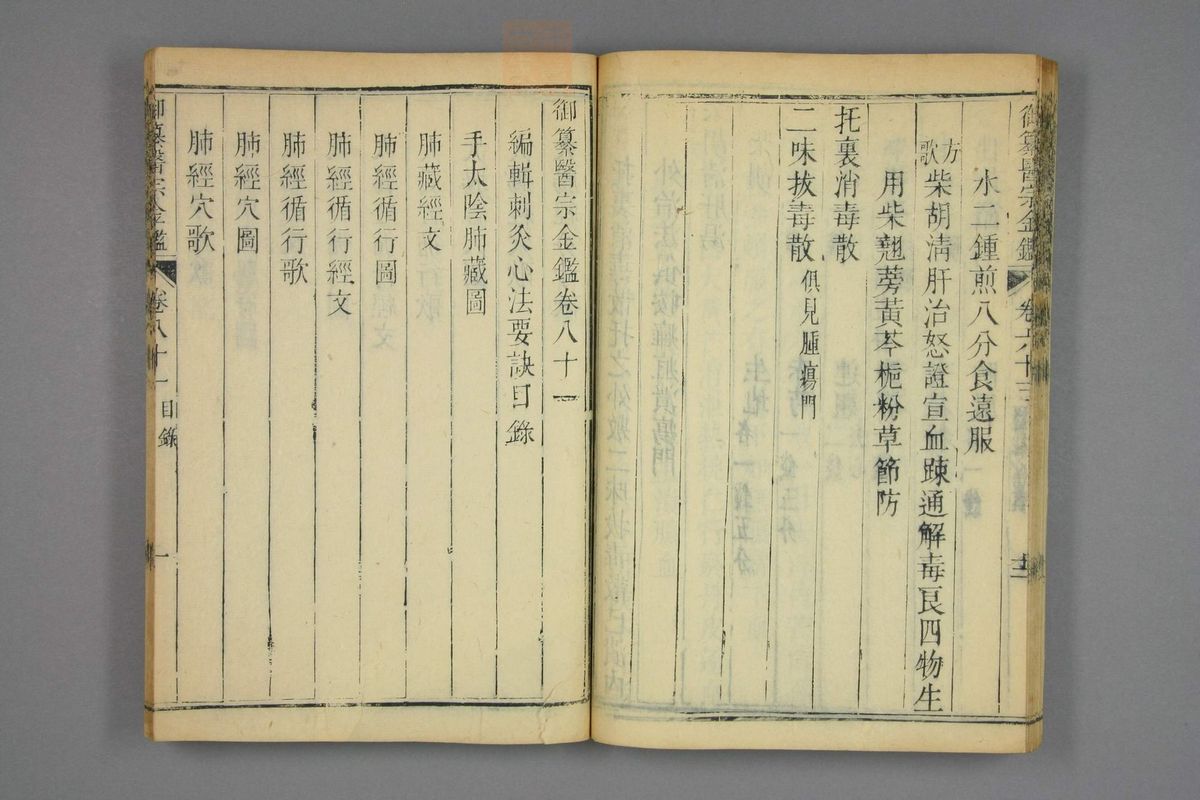 御纂醫宗金鑑 卷六十三
水二鍾煎八分食遠服
方歌 柴胡淸肝治怒證宣血踈通解毒良四物生
用柴翹蒡黃芩梔粉草節防
托裏消毒散
二味拔毒散 俱見腫瘍門
御纂醫宗金鑑卷八十一
編輯刺灸心法要訣目錄
手太陰肺藏圖
肺藏經文
肺經循行圖
肺經循行經文
肺經循行歌
肺經穴圖
肺經穴歌
御纂醫宗金鑑 卷八十一 目錄 一